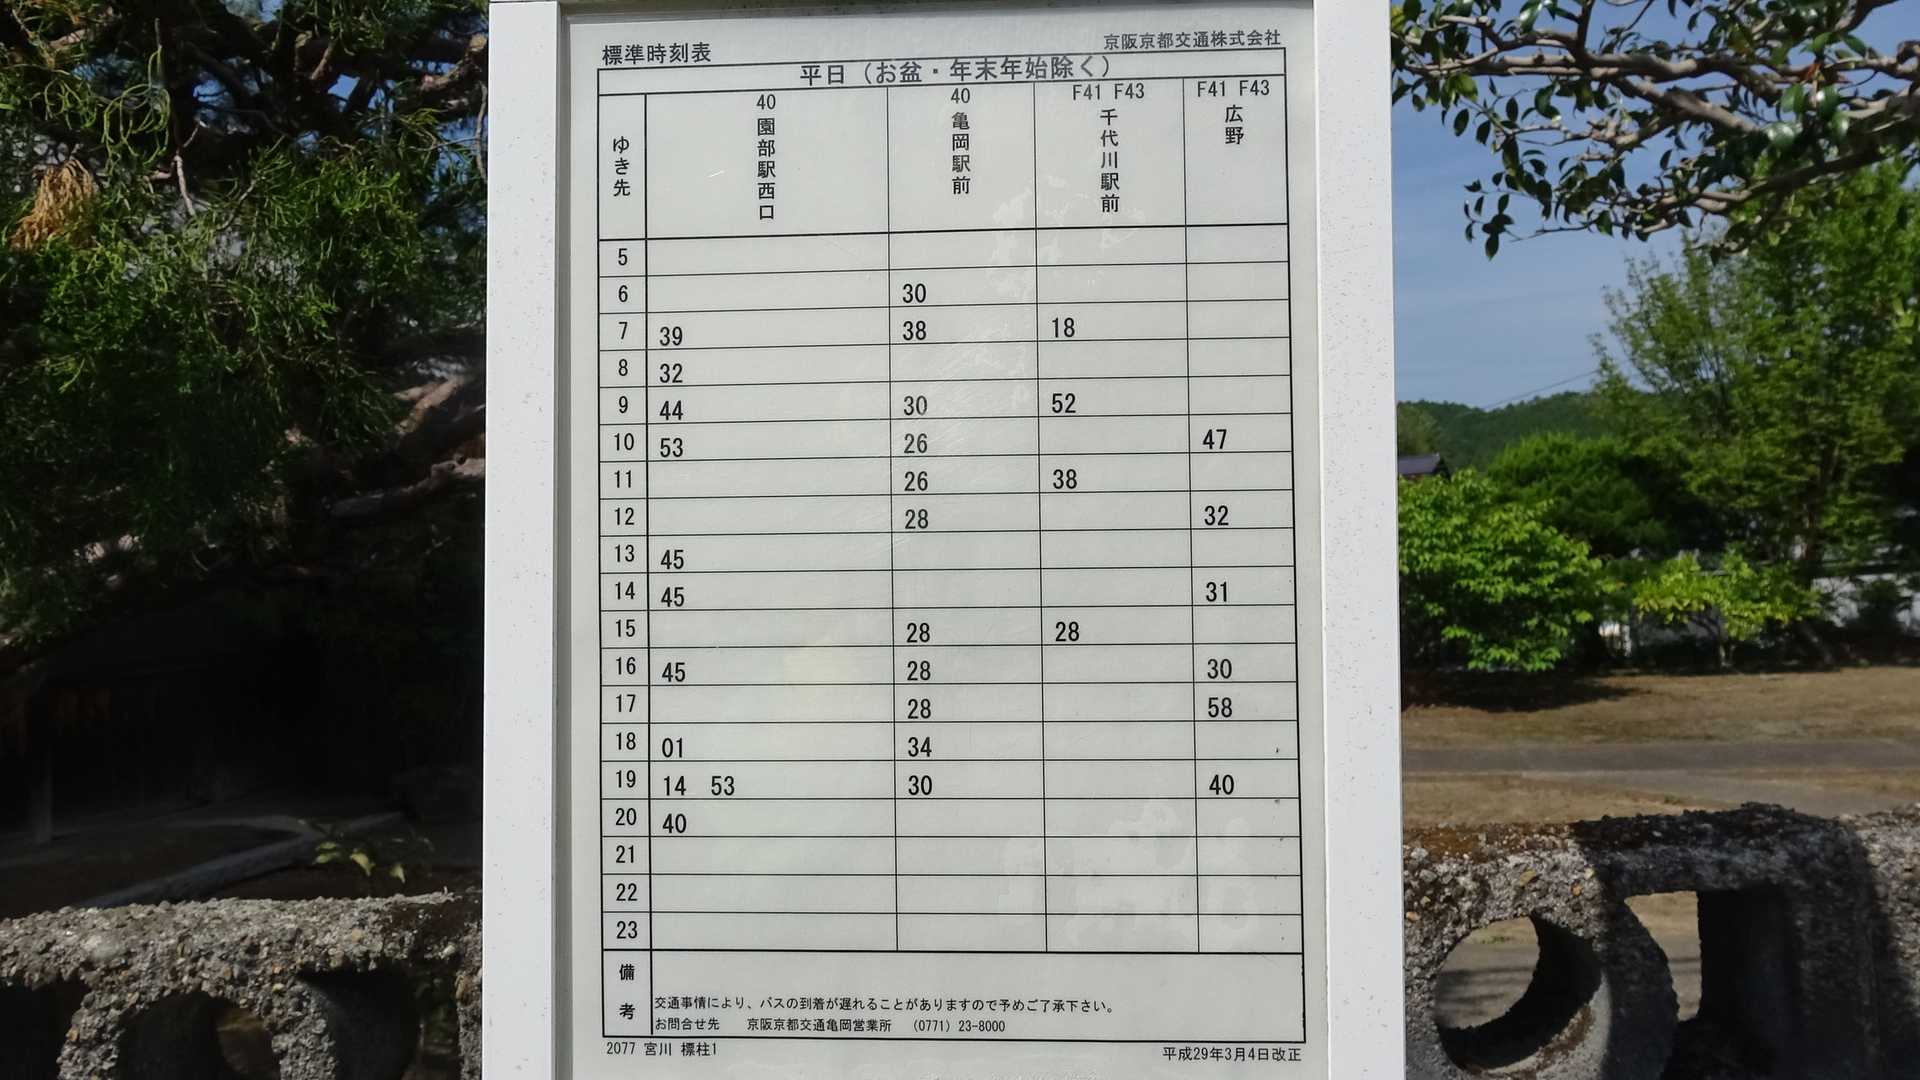 標準時刻表
京阪京都交通株式会社
平日（お盆・年末年始除く）
ゆき先 40 園部駅西口 40 亀岡駅前 F41 F43 千代川駅前 F41 F43 広野
5
6 30
7 39 38 18
8 32
9 44 30 52
10 53 26 47
11 26 38
12 28 32
13 45
14 45 31
15 28 28
16 45 28 30
17 28 58
18 01 34
19 14 53 30 40
20 40
21
22
23
備考
交通事情により、バスの到着が遅れることがありますので予めご了承下さい。
お問合せ先 京阪京都交通亀岡営業所 (0771) 23-8000
2077 宮川 標柱1
平成29年3月4日改正